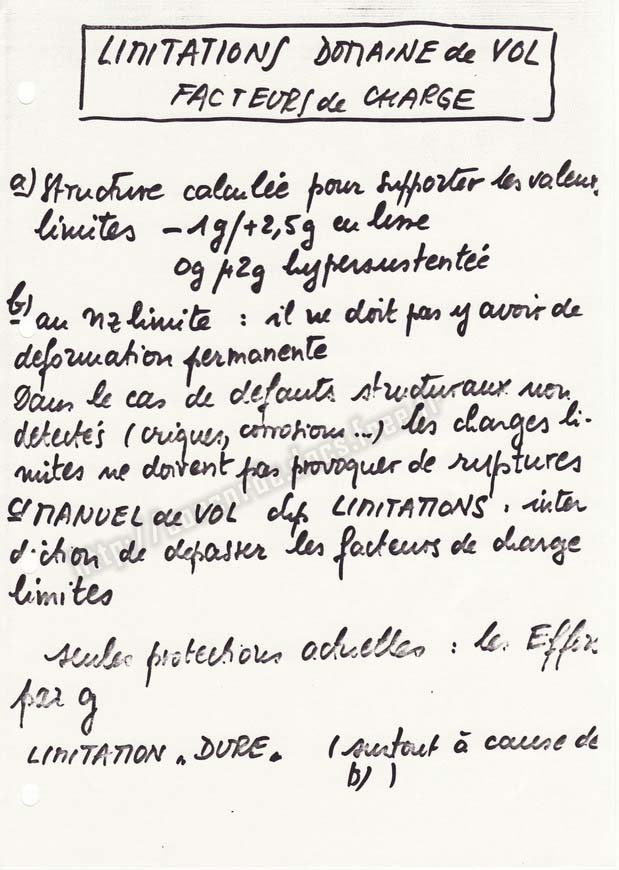 LIMITATIONS DOMAINE de VOL
FACTEURS de CHARGE
a) Structure calculée pour supporter les valeurs
limites -1g/+2,5g en lisse
0g +2g hypersustentée
b) au nz limite : il ne doit pas y avoir de
deformation permanente
Dans le cas de défauts structuraux non
detectés (criques, corrosions...) les charges li-
mites ne doivent pas provoquer de ruptures
c) MANUEL de VOL chp LIMITATIONS. inter
diction de depasser les facteurs de charge
limites
seules protections actuelles : les Efforts
par g
LIMITATION "DURE" (surtout à cause de
b) )